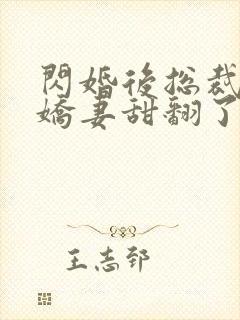 閃婚後總裁
嬌妻甜翻了
王志郅